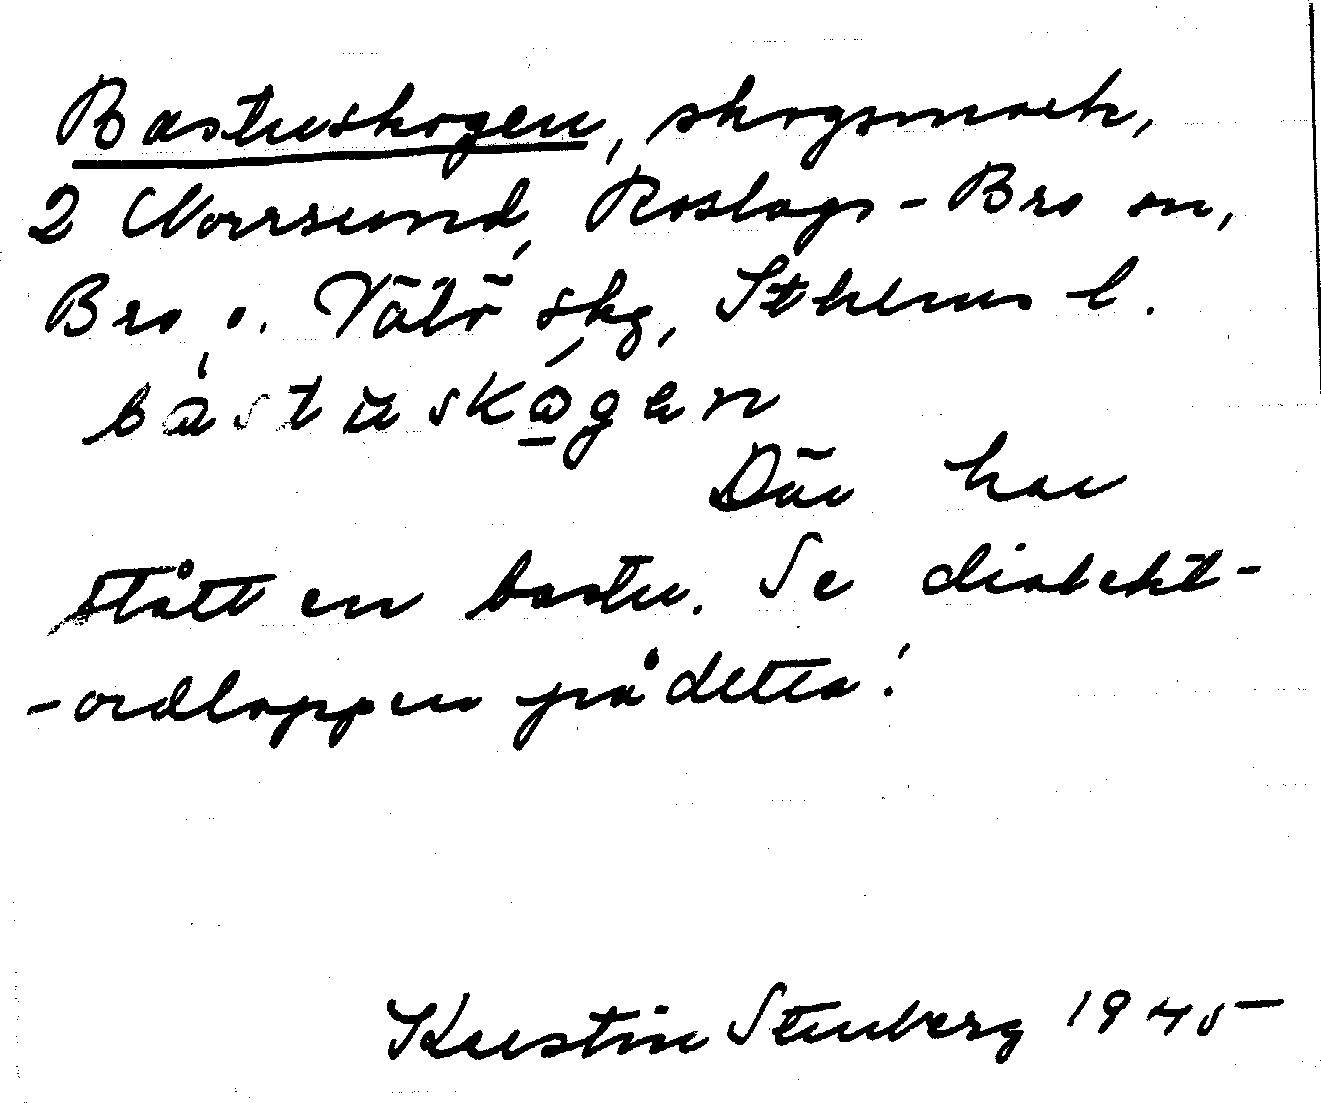 Bastuskogen, skogsmark,
2 Norrsund, Roslags-Bro sn,
Bro o. Vätö skg, Sthlms l.
bastuskogen
Där har
stått en bastu. Se dialekt-
-ordlappen på detta!
Kerstin Stenberg 1945